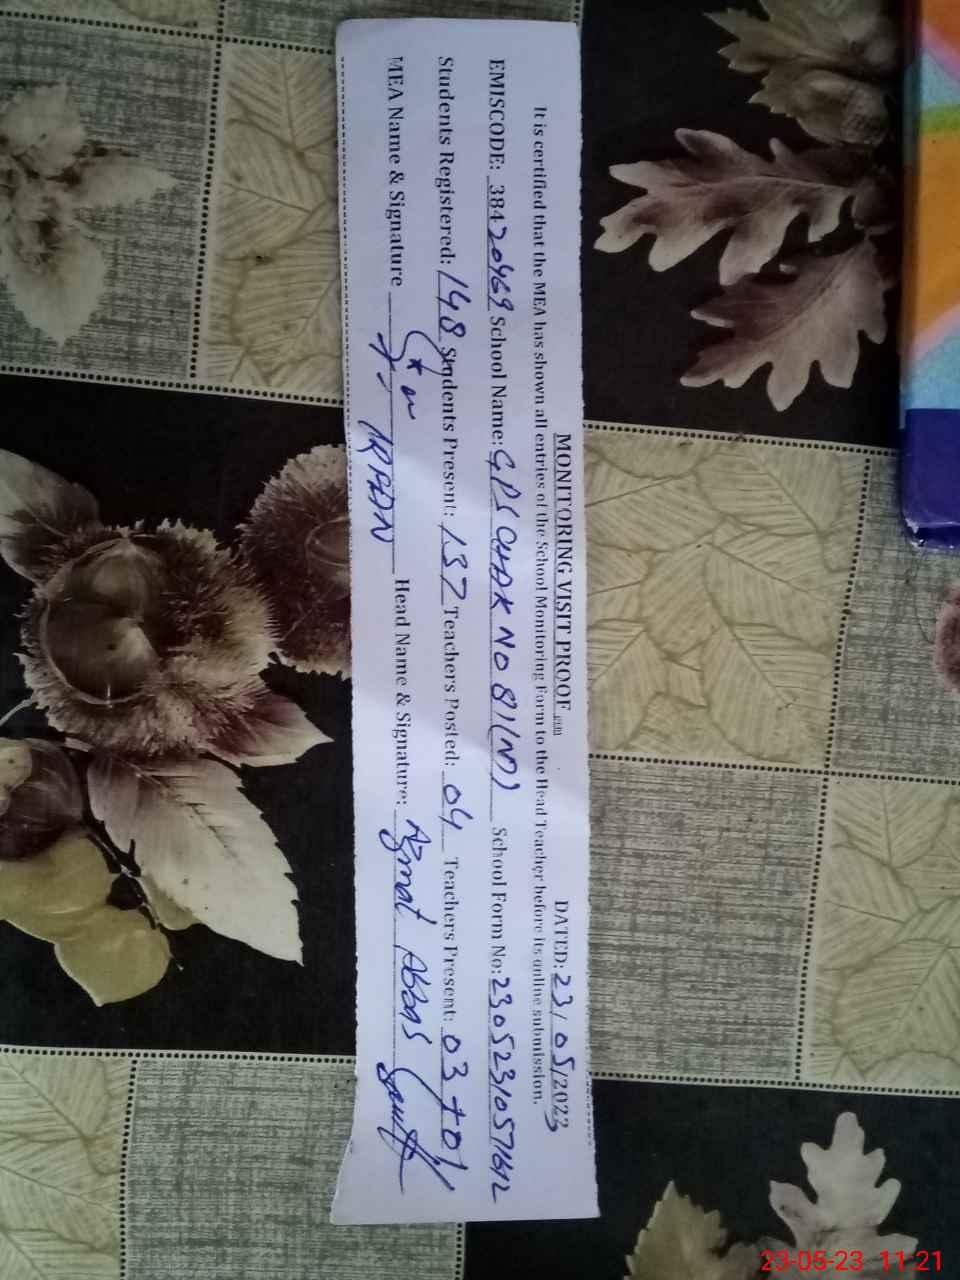 MONITORING VISIT PROOF
DATED: 23/05/2023
It is certified that the MEA has shown all entries of the School Monitoring Form to the Head Teacher before its online submission.
EMISCODE: 38420469 School Name: GPS CHAK NO 81(N) School Form No: 23052310571612
Students Registered: 148 Students Present: 137 Teachers Posted: 04 Teachers Present: 03+01
MEA Name & Signature Head Name & Signature: Azmat Abbas
23-05-23 11:21